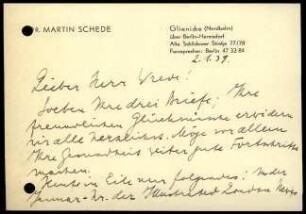 R. MARTIN SCHEDE
Glienicke (Nordbahn)
über Berlin-Hermsdorf
Alte Schildower Straße 77/78
Fernsprecher: Berlin 47 32 84
2.1.39.
Lieber Herr Wrede!
Soeben Ihre drei Briefe; Ihre
freundlichen Glückwünsche erwidern
wir alle herzlichst. Möge vor allem
Ihre Gesundheit weiter gute Fortschritte
machen.
Heute in Eile nur folgendes: In der
Januar-Nr. der Illustrated London News